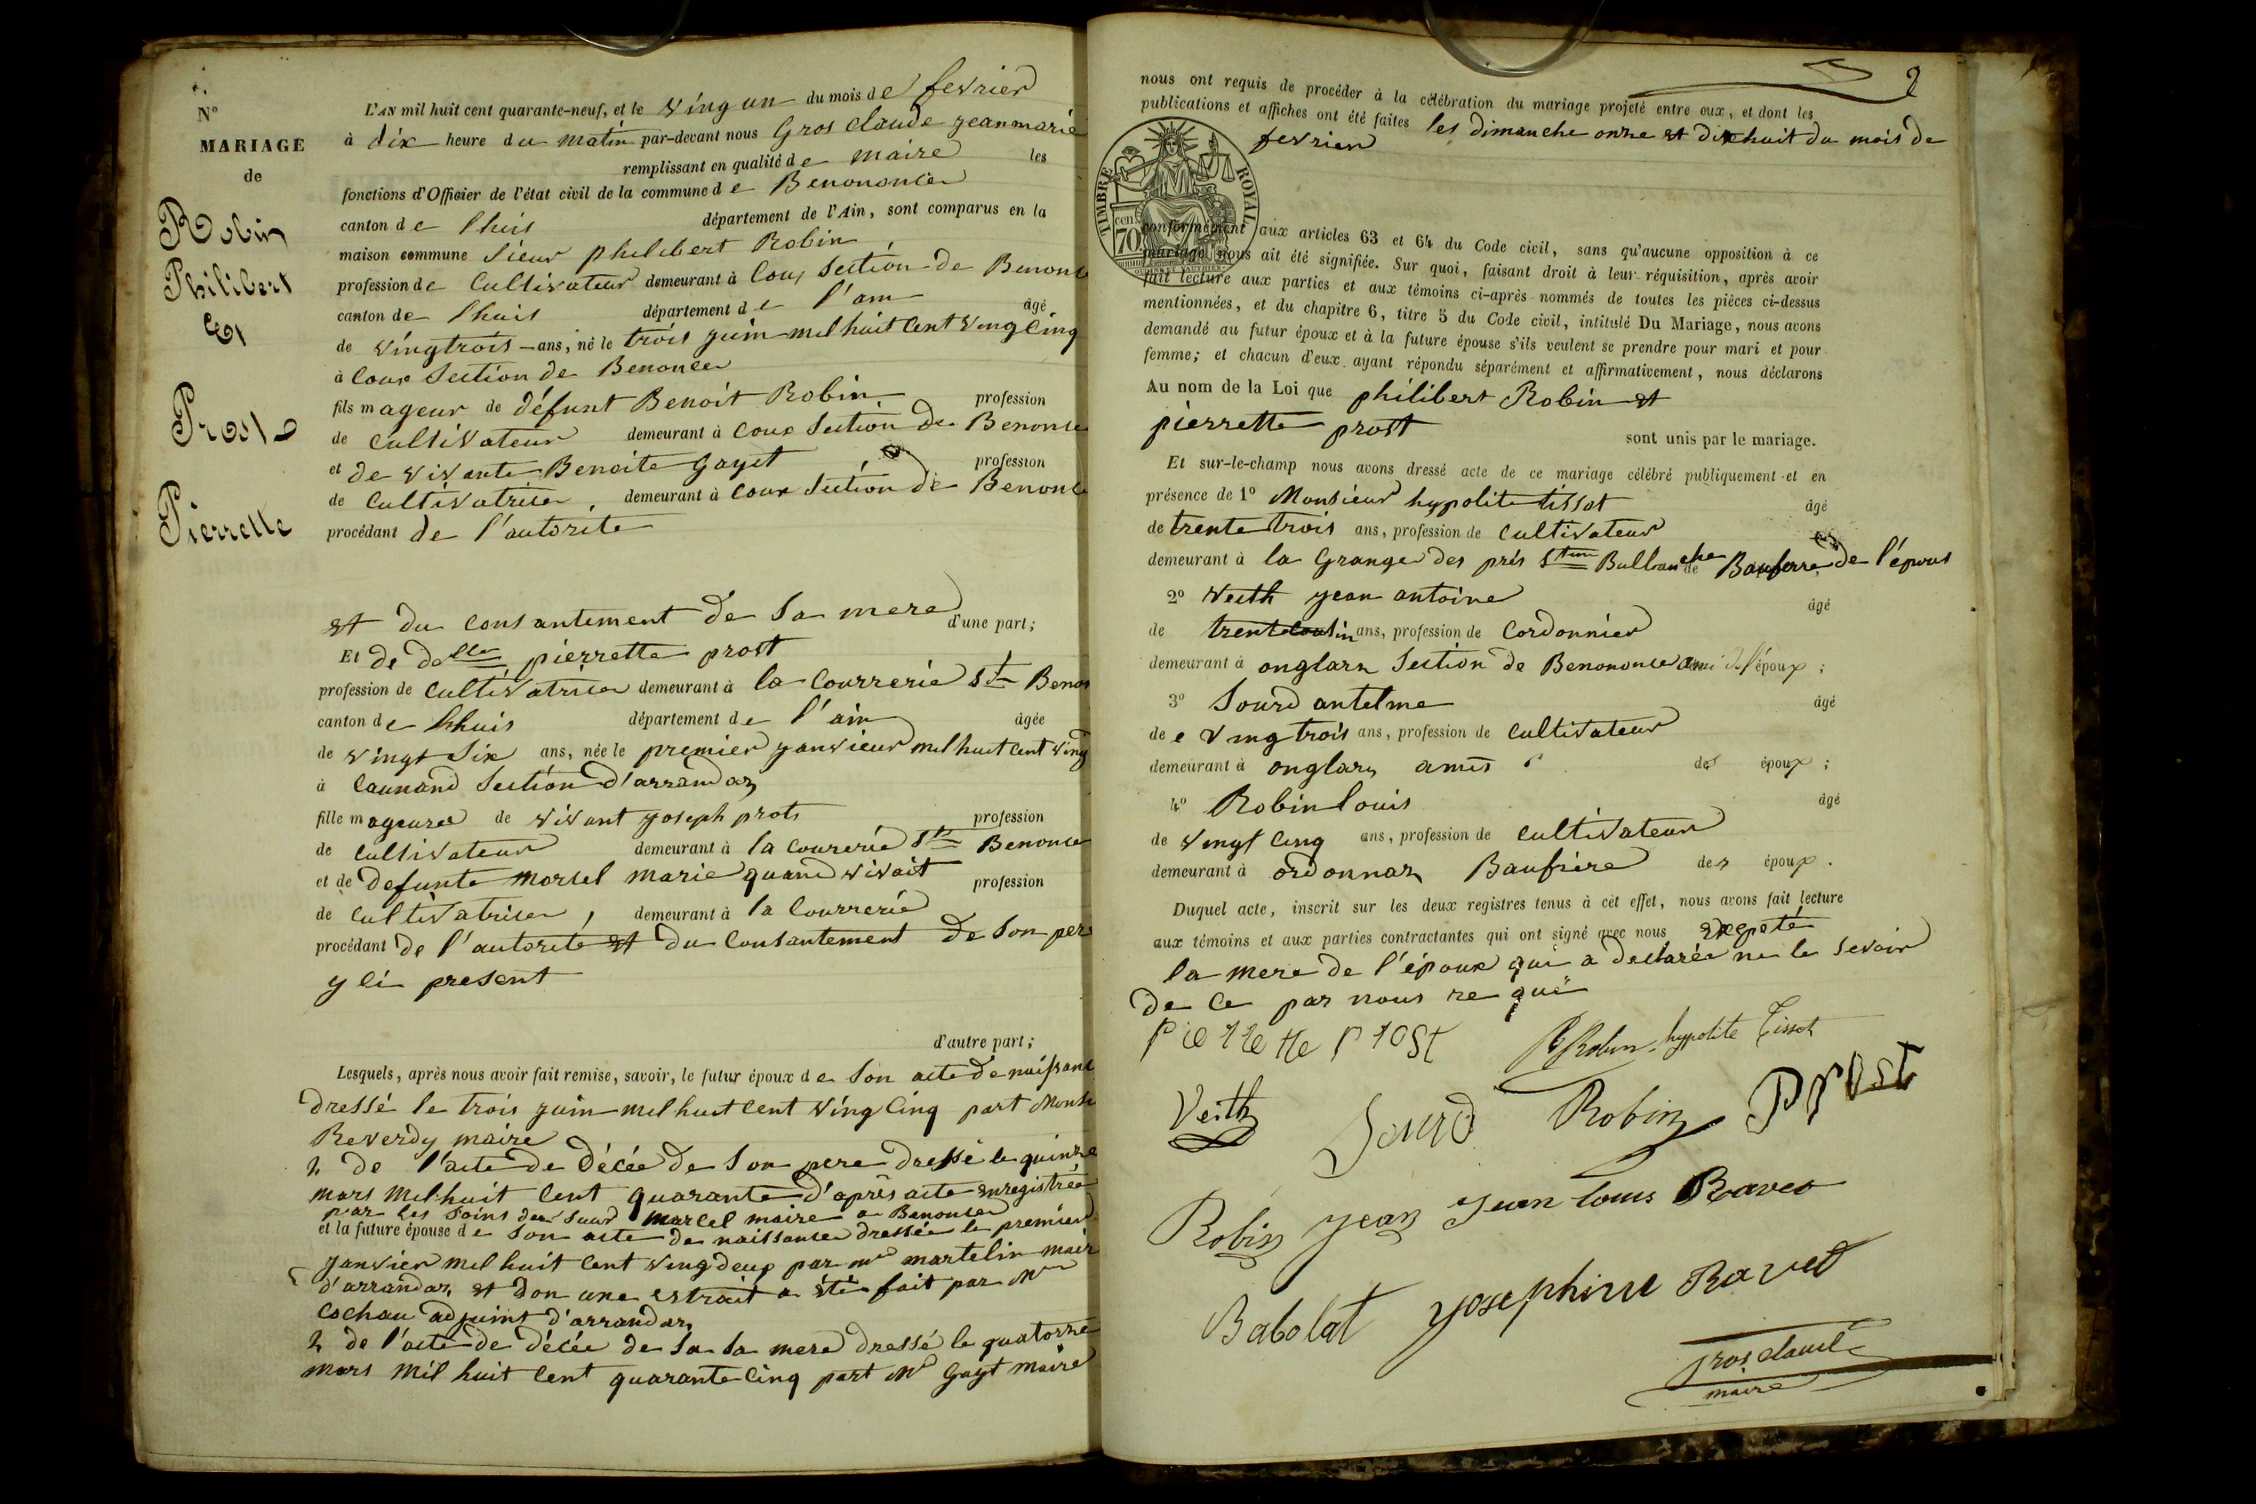 N°
MARIAGE
de
Robin
Philibert
Et
Prost
Pierrette
L'AN mil huit cent quarante-neuf, et le ving un du mois de fevrier
à dix heure du matin par-devant nous Gros claude jean marie
remplissant en qualité de maire les
fonctions d'Officier de l'état civil de la commune de Benononce
canton de lhuis département de l'Ain, sont comparus en la
maison commune Sieur philibert Robin
profession de Cultivateur demeurant à Coux Section de Benonce
canton de lhuis département de l'ain âgé
de vingtrois ans, né le trois juin mil huit cent ving cinq
à Coux Section de Benonce
fils mageur de défunt Benoit Robin profession
de cultivateur demeurant à Coux Section de Benonce
et de vivante Benoite Gayet profession
de cultivatrice demeurant à Coux Section de Benonce
procédant de l'autorite
et du consantement de sa mere d'une part;
Et de delle pierrette prost
profession de cultivatrice demeurant à la Courrerie Ston Benon
canton de lhuis département de l'ain âgée
de vingt Six ans, née le premier janvieur mil huit cent ving
à Caunand Section d'arrandaz
fille mageure de vivant joseph prots profession
de cultivateur demeurant à la coureriè Ston Benonce
et de defunte morsel marie quand vivait profession
de cultivatrice, demeurant à la Courrerie
procédant de l'autorité et du consantement de son pere
y ci present
d'autre part;
Lesquels, après nous avoir fait remise, savoir, le futur époux de Son acte de naissanc
dressé le trois juin mil huit cent ving cinq part Mons
Reverdy maire
2 de l'acte de décée de son pere dressé le quinze
mars mil huit cent quarante d'après acte enregistrée
par les soins de Sieur Marcel maire a Benonce
et la future épouse de son acte de naissance dressée le premier
janvier mil huit cent ving deux par mr martelin maire
d'arrandaz et don une estrait a été fait par Mr
Cochau adjuint d'arrandaz
2 de l'acte de décée de sa sa mere dressé le quatorze
mars mil huit cent quarante cinq part Mr Gayt maire
2
nous ont requis de procéder à la célébration du mariage projeté entre eux, et dont les
publications et affiches ont été faites les dimanche onze et dixhuit du mois de
fevrier
TIMBRE ROYAL
70 cen.
conformément aux articles 63 et 64 du Code civil, sans qu'aucune opposition à ce
mariage nous ait été signifiée. Sur quoi, faisant droit à leur réquisition, après avoir
fait lecture aux parties et aux témoins ci-après nommés de toutes les pièces ci-dessus
mentionnées, et du chapitre 6, titre 5 du Code civil, intitulé Du Mariage, nous avons
demandé au futur époux et à la future épouse s'ils veulent se prendre pour mari et pour
femme; et chacun d'eux ayant répondu séparément et affirmativement, nous déclarons
Au nom de la Loi que philibert Robin et
pierrette prost sont unis par le mariage.
Et sur-le-champ nous avons dressé acte de ce mariage célébré publiquement et en
présence de 1° Monsieur hypolite tissot âgé
de trente trois ans, profession de cultivateur
demeurant à la Grange des prés de l'épous
2° Veith jean antoine âgé
de ans, profession de Cordonnier
demeurant à onglarz Section de Benononce ami de l'époux;
3° Sourd antelme âgé
de e vingtrois ans, profession de cultivateur
demeurant à onglarz amis des époux;
4° Robin louis âgé
de vingt cinq ans, profession de cultivateur
demeurant à ordonnaz Baufrère des époux.
Duquel acte, inscrit sur les deux registres tenus à cet effet, nous avons fait lecture
aux témoins et aux parties contractantes qui ont signé avec nous exepeté
la mere de l'époux qui a declarée ne le sevoir
de ce par nous requi
Pierrette Prost P Robin hypolite Tissot
Veith Sourd Robin Prost
Robin jean Jean louis Ravet
Babolat Josephine Ravet
gros claude
maire